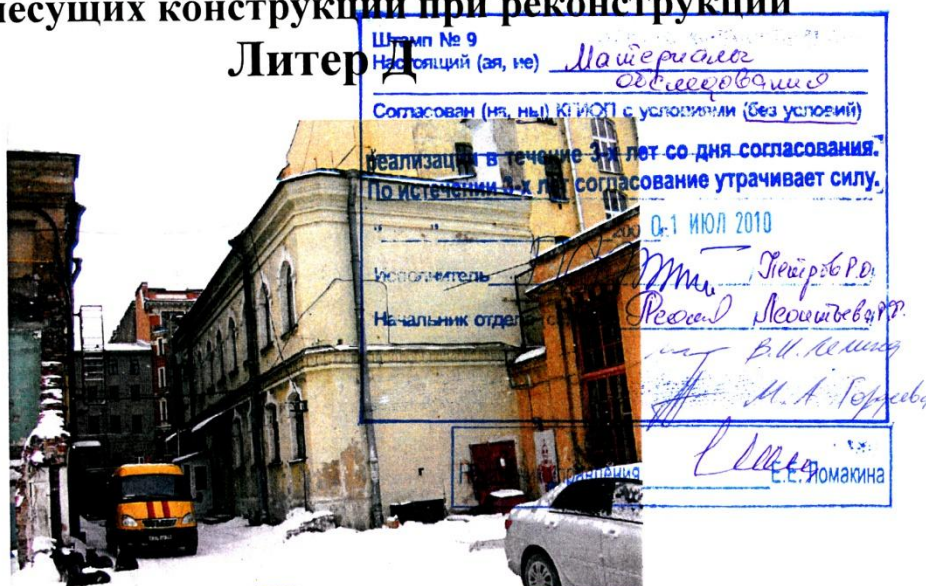 несущих конструкций при реконструкции
Литер Д
Штамп № 9
Настоящий (ая, ие) Материалы
обследования
Согласован (на, ны) КГИОП с условиями (без условий)
реализация в течение 3-х лет со дня согласования.
По истечении 3-х лет согласование утрачивает силу.
" " 200 01 ИЮЛ 2010
Исполнитель Петров Р.О.
Начальник отдела Леонтьева
В.И.
М.А.
управления Е.Е. Ломакина